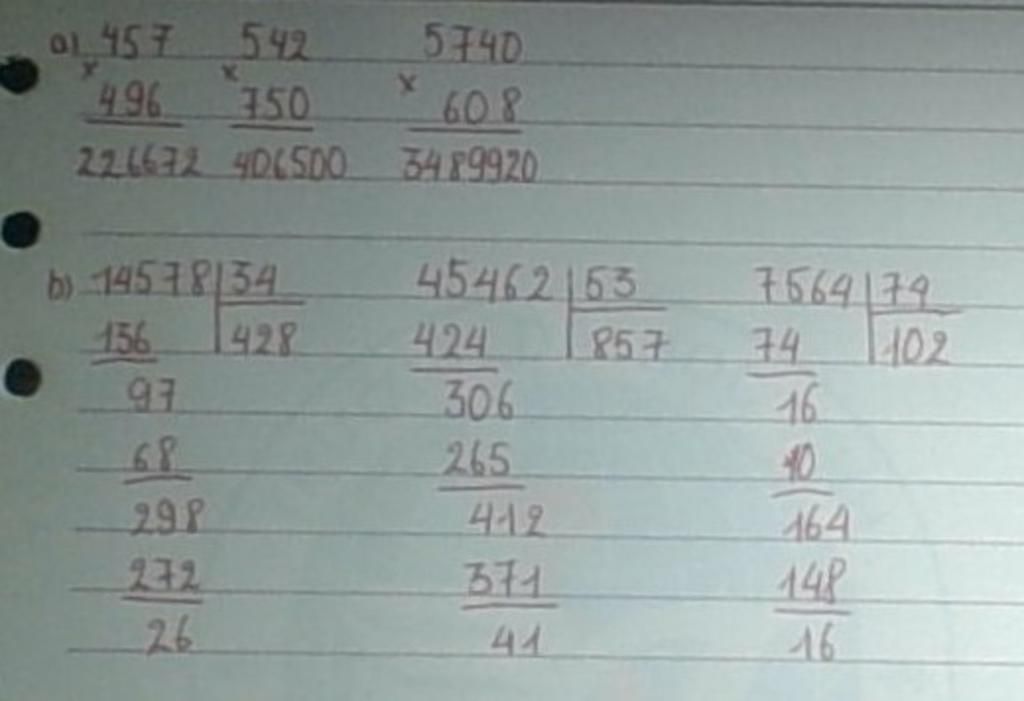 a) 457 542 5740
x 496 x 750 x 608
226672 406500 3489920
b) 14578 34 45462 53 7564 74
136 428 424 857 74 102
97 306 16
68 265 10
298 412 164
272 371 148
26 41 16